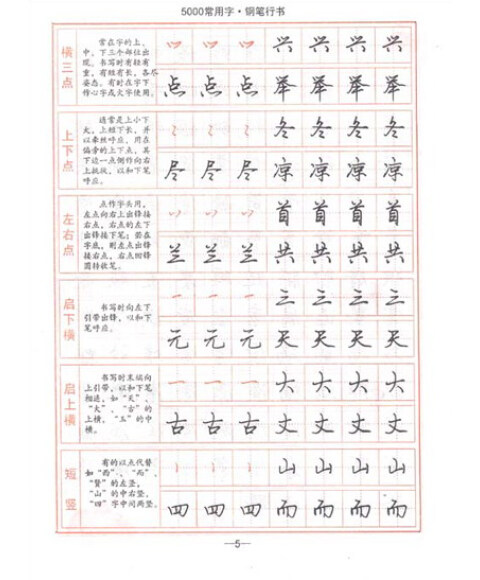 5000常用字·钢笔行书
横三点
常在字的上、
中、下三个部位出
现。书写时有轻有
重,有短有长,各尽
姿态。有时在字下
作心字或火字使用。
兴 兴 兴 兴
点 点 点 举 举 举 举
上下点
通常是上小下
大,上短下长,并
以牵丝呼应,用在
偏旁的上下点,其
下边一点侧作向右
上挑状,以和下笔
呼应。
冬 冬 冬 冬
尽 尽 尽 凉 凉 凉 凉
左右点
点作字头用,
左点向右上出锋接
右点,右点向左下
出锋接下笔;若在
字底,则左点出锋
接右点,右点回锋
圆转收笔。
首 首 首 首
兰 兰 兰 共 共 共 共
启下横
书写时向左下
引带出锋,以和下
笔呼应。
一 一 一 三 三 三 三
元 元 元 天 天 天 天
启上横
书写时末端向
上引带,以和下笔
相连,如“天”、
“大”、“古”的
上横,“五”的中
横。
一 一 一 大 大 大 大
古 古 古 丈 丈 丈 丈
短竖
有的以点代替
如“西”、“而”、
“贤”的左竖,
“山”的中右竖,
“四”字中间两竖。
山 山 山 山
四 四 四 而 而 而 而
—5—